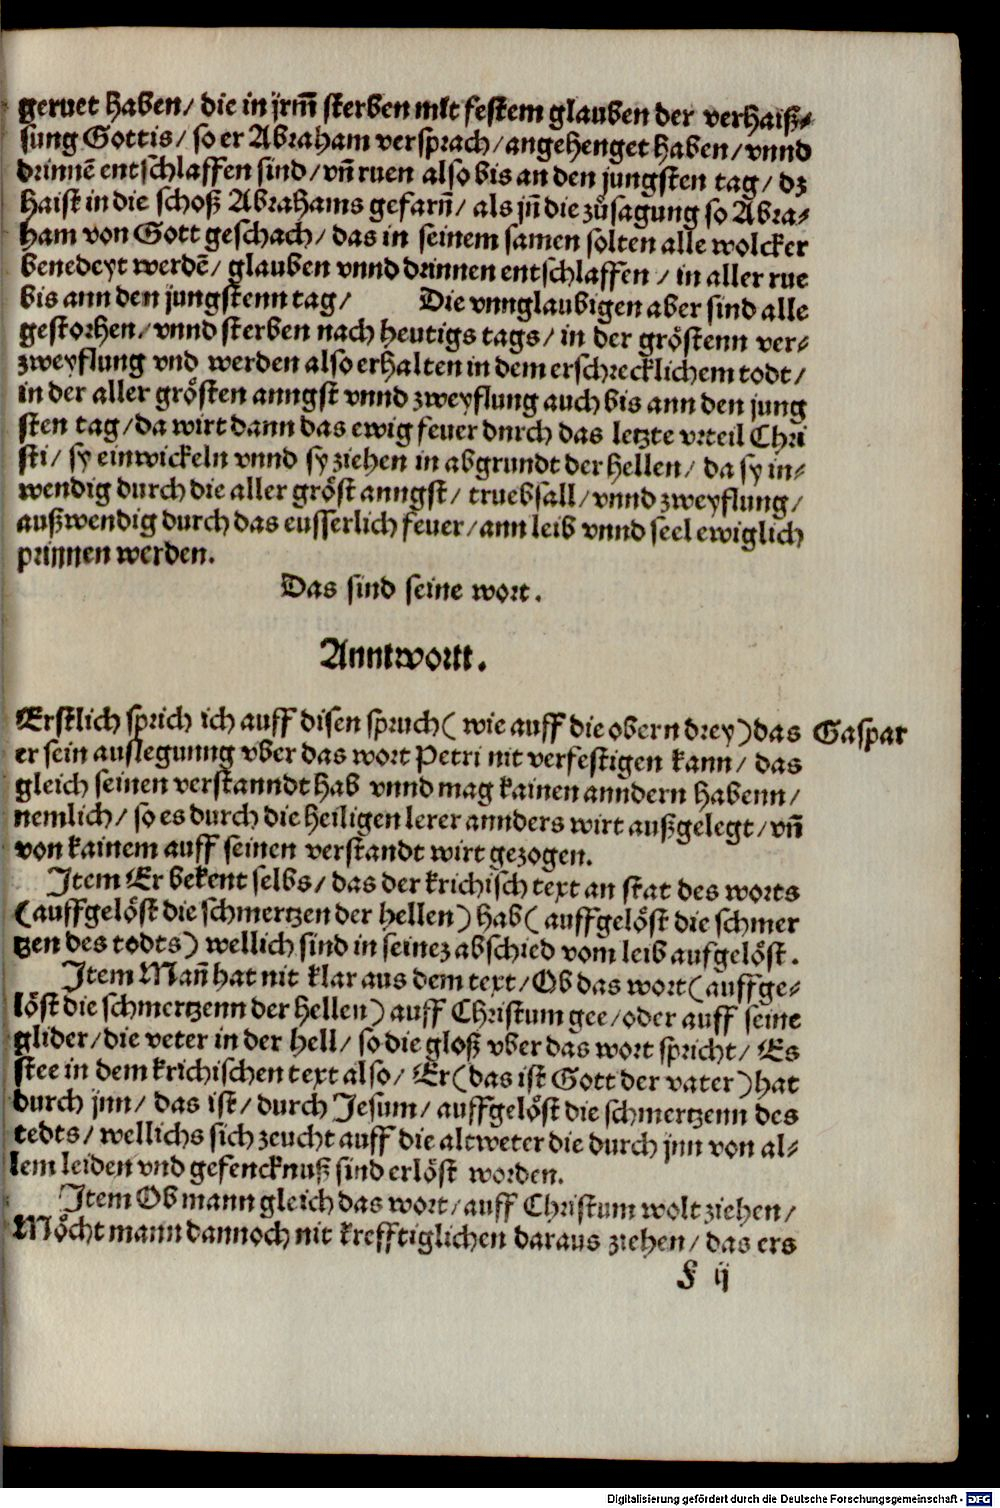 geruet haben/ die in jrm̄ sterben mit festem glauben der verhaiß⸗
sung Gottis/ so er Abraham versprach/ angehenget haben/ vnnd
drinnē entschlaffen sind/ vn̄ ruen also bis an den jungsten tag/ dz
haist in die schoß Abrahams gefarn̄/ als jn̄ die zůsagung so Abra⸗
ham von Gott geschach/ das in seinem samen solten alle wolcker
benedeyt werdē/ glauben vnnd drinnen entschlaffen / in aller rue
bis ann den jungstenn tag/ Die vnnglaubigen aber sind alle
gestorhen/ vnnd sterben nach heutigs tags/ in der gröstenn ver⸗
zweyflung vnd werden also erhalten in dem erschrecklichem todt/
in der aller grösten anngst vnnd zweyflung auch bis ann den jung
sten tag/ da wirt dann das ewig feuer durch das letzte vrteil Chri
sti/ sy einwickeln vnnd sy ziehen in abgrundt der hellen/ da sy in⸗
wendig durch die aller gröst anngst/ truebsall/ vnnd zweyflung/
außwendig durch das eusserlich feuer/ ann leib vnnd seel ewiglich
prinnen werden.
Das sind seine wort.
Anntwortt.
Erstlich sprich ich auff disen spruch ( wie auff die obern drey) das Gaspar
er sein auslegunng vber das wort Petri nit verfestigen kann/ das
gleich seinen verstanndt hab vnnd mag kainen anndern habenn/
nemlich/ so es durch die heiligen lerer annders wirt außgelegt/ vn̄
von kainem auff seinen verstandt wirt gezogen.
Item Er bekent selbs/ das der krichisch text an stat des worts
(auffgelöst die schmertzen der hellen) hab ( auffgelöst die schmer
tzen des todts) wellich sind in seinez abschied vom leib aufgelöst.
Item Man̄ hat nit klar aus dem text/ Ob das wort (auffge⸗
löst die schmertzenn der hellen) auff Christum gee/ oder auff seine
glider/ die veter in der hell/ so die gloß vber das wort spricht/ Es
stee in dem krichischen text also/ Er (das ist Gott der vater) hat
durch jnn/ das ist/ durch Jesum/ auffgelöst die schmertzenn des
tedts/ wellichs sich zeucht auff die altweter die durch jnn von al⸗
lem leiden vnd gefencknuß sind erlöst worden.
Item Ob mann gleich das wort/ auff Christum wolt ziehen/
Möcht mann dannoch nit krefftiglichen daraus ziehen/ das ers
F ij
Digitalisierung gefördert durch die Deutsche Forschungsgemeinschaft - DFG